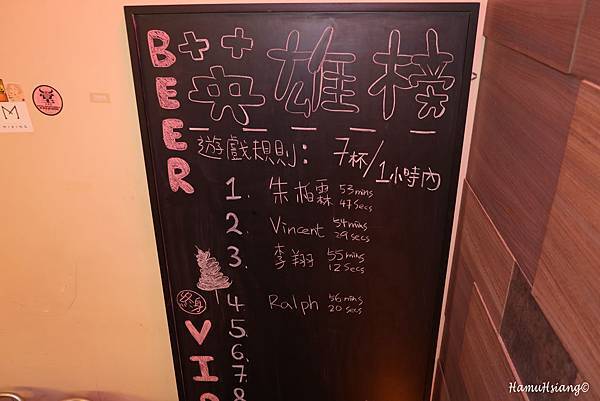 BEER
英雄榜
遊戲規則：7杯/1小時內
1. 朱柏霖 53 mins 47 secs
2. Vincent 54 mins 29 secs
3. 李翔 55 mins 12 secs
4. Ralph 56 mins 20 secs
5.
6.
7.
8
終身
VIP
M
HamuHsiang©